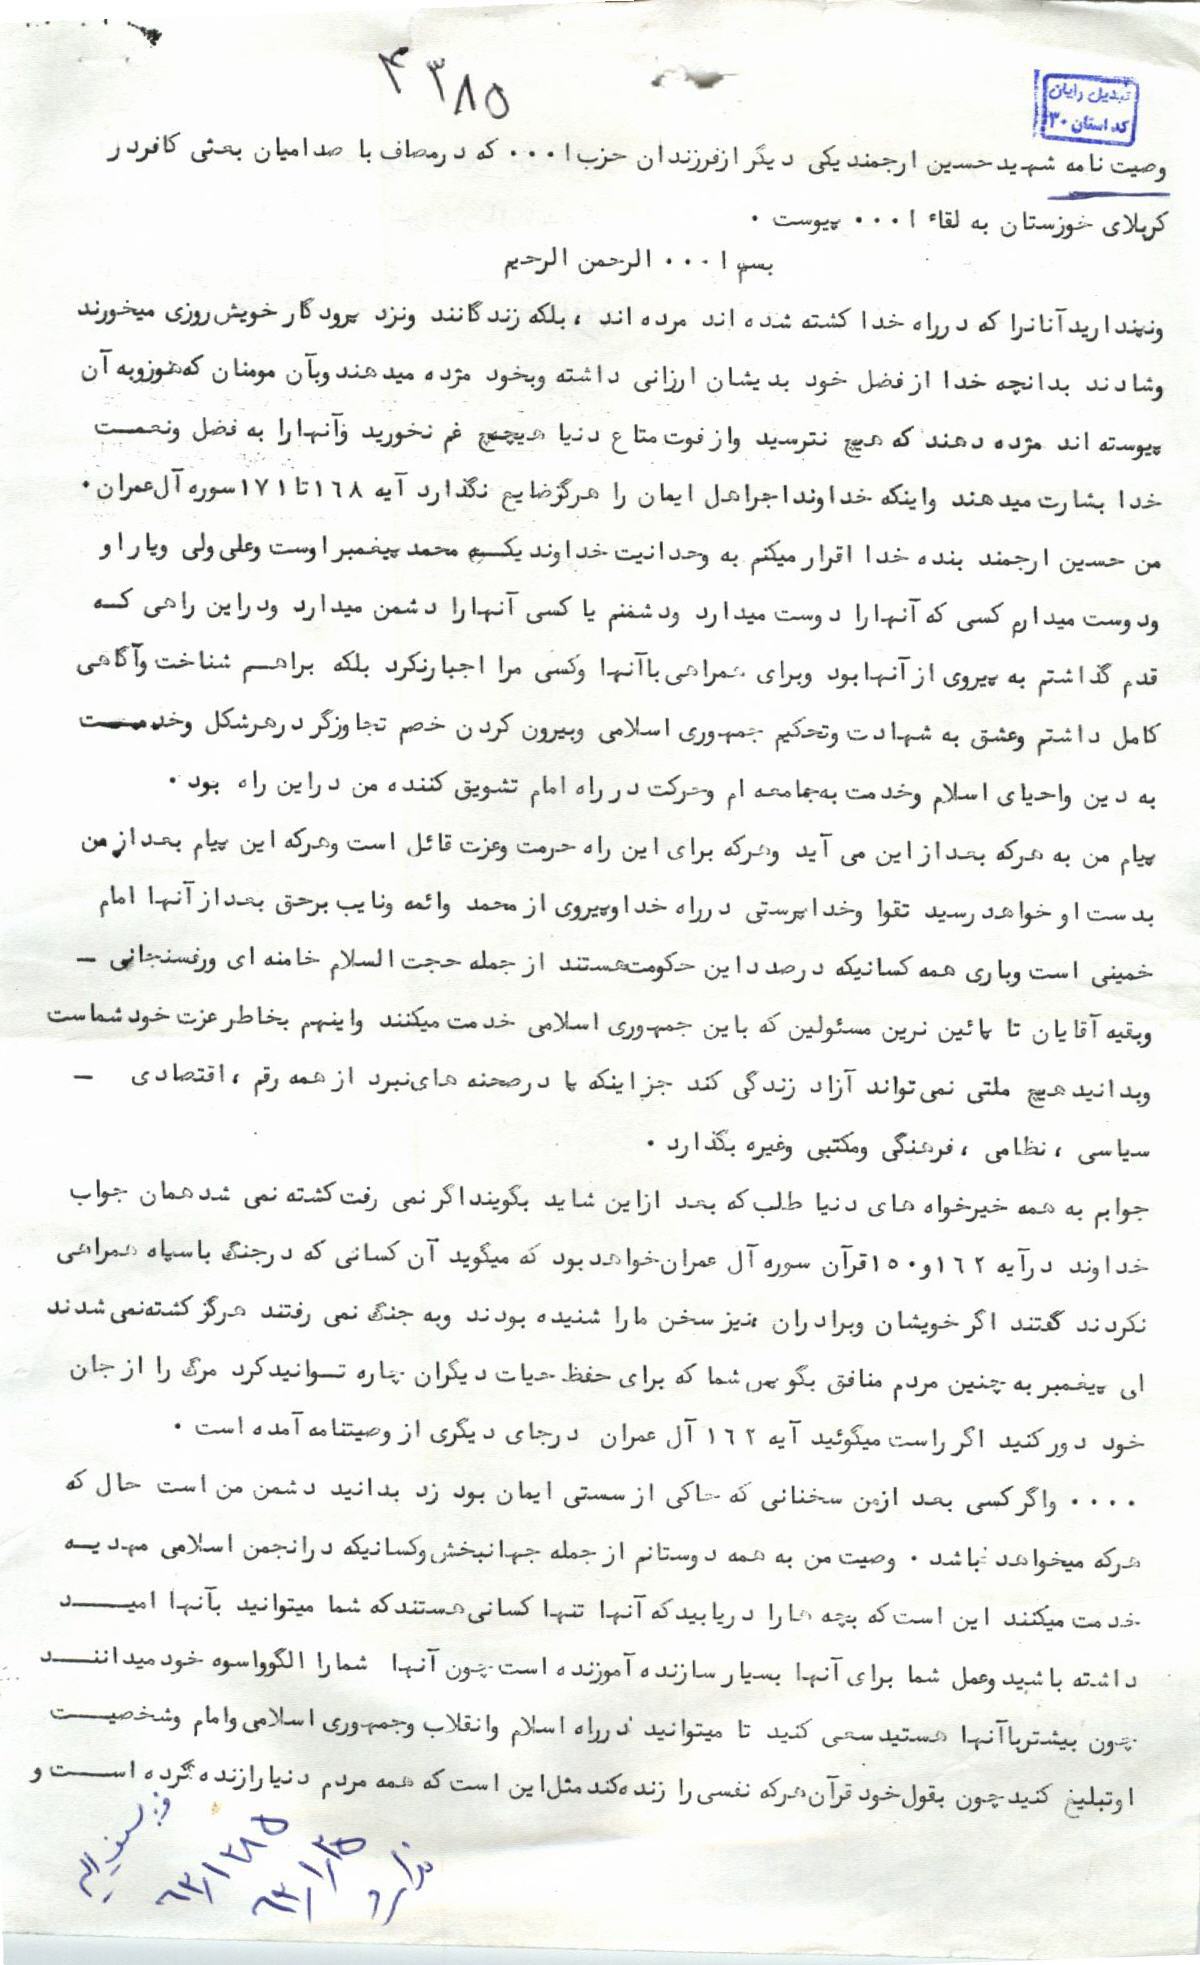 ۴۳۸۵
تبدیل رایان
کد استان ۳۰
وصیت نامه شهید حسین ارجمند یکی دیگر از فرزندان حزب ا... که در مصاف با صدامیان بعثی کافر در
کربلای خوزستان به لقاء ا... پیوست .
بسم ا... الرحمن الرحیم
ونپندارید آنانرا که در راه خدا کشته شده اند مرده اند ، بلکه زندگانند ونزد پرودگار خویش روزی میخورند
وشادند بدانچه خدا از فضل خود بدیشان ارزانی داشته وبخود مژده میدهند وبآن مومنان که هنوز وبه آن
پیوسته اند مژده دهند که هیچ نترسید واز فوت متاع دنیا هیچ غم نخورید وآنهارا به فضل ونعمت
خدا بشارت میدهند واینکه خداوند اجر اهل ایمان را هرگز ضایع نگذارد آیه ۱٦۸ تا ۱۷۱ سوره آل عمران .
من حسین ارجمند بنده خدا اقرار میکنم به وحدانیت خداوند محمد پیغمبر اوست وعلی ولی ویار او
ودوست میدارم کسی که آنهارا دوست میدارد ودشمنم یا کسی آنهارا دشمن میدارد ودر این راهی که
قدم گذاشتم به پیروی از آنها بود وبرای همراهی با آنها وکسی مرا اجبار نکرد بلکه براهم شناخت وآگاهی
کامل داشتم وعشق به شهادت وتحکیم جمهوری اسلامی وبیرون کردن خصم تجاوزگر در هر شکل وخدمت
به دین واحیای اسلام وخدمت به جامعه ام وحرکت در راه امام تشویق کننده من در این راه بود .
پیام من به هرکه بعد از این می آید وهرکه برای این راه حرمت وعزت قائل است وهرکه این پیام بعد از من
بدست او خواهد رسید تقوا وخداپرستی در راه خدا وپیروی از محمد وائمه ونایب برحق بعد از آنها امام
خمینی است وباری همه کسانیکه در صدد این حکومت هستند از جمله حجت السلام خامنه ای ورفسنجانی -
وبقیه آقایان تا پائین ترین مسئولین که باین جمهوری اسلامی خدمت میکنند واینهم بخاطر عزت خود شماست
وبدانید هیچ ملتی نمی تواند آزاد زندگی کند جز اینکه پا در صحنه های نبرد از همه رقم ، اقتصادی -
سیاسی ، نظامی ، فرهنگی ومکتبی وغیره بگذارد .
جوابم به همه خیرخواه های دنیا طلب که بعد از این شاید بگویند اگر نمی رفت کشته نمی شد همان جواب
خداوند در آیه ۱٦۲ و ۱۵۰ قرآن سوره آل عمران خواهد بود که میگوید آن کسانی که در جنگ با سپاه همراهی
نکردند گفتند اگر خویشان وبرادران نیز سخن مارا شنیده بودند وبه جنگ نمی رفتند هرگز کشته نمی شدند
ای پیغمبر به چنین مردم منافق بگو پس شما که برای حفظ حیات دیگران چاره توانید کرد مرگ را از جان
خود دور کنید اگر راست میگوئید آیه ۱٦۲ آل عمران در جای دیگری از وصیتنامه آمده است .
.... واگر کسی بعد از من سخنانی که حاکی از سستی ایمان بود زد بدانید دشمن من است حال که
هرکه میخواهد باشد . وصیت من به همه دوستانم از جمله جهانبخش وکسانیکه در انجمن اسلامی مهدیه
خدمت میکنند این است که بچه ها را دریابید که آنها تنها کسانی هستند که شما میتوانید بآنها امید
داشته باشید وعمل شما برای آنها بسیار سازنده آموزنده است چون آنها شمارا الگو واسوه خود میدانند
چون بیشتر با آنها هستید سعی کنید تا میتوانید در راه اسلام وانقلاب وجمهوری اسلامی وامام وشخصیت
او تبلیغ کنید چون بقول خود قرآن هرکه نفسی را زنده کند مثل این است که همه مردم دنیا را زنده کرده است و